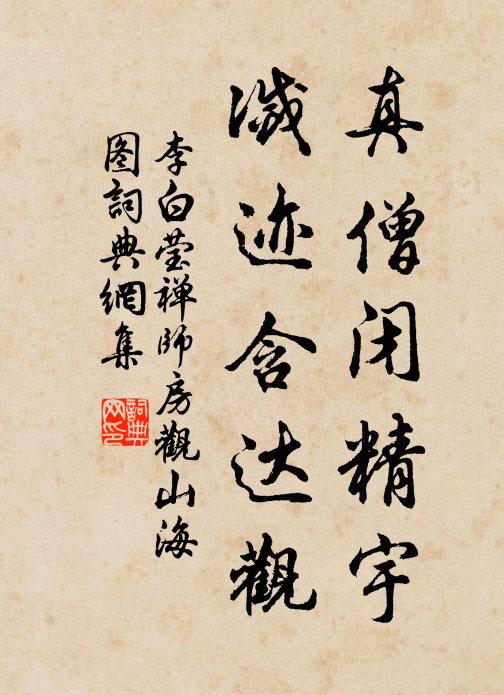 真僧闭精宇
灭迹含达觀
李白莹禅师房觀山海
图詞典網集
詞典
网印